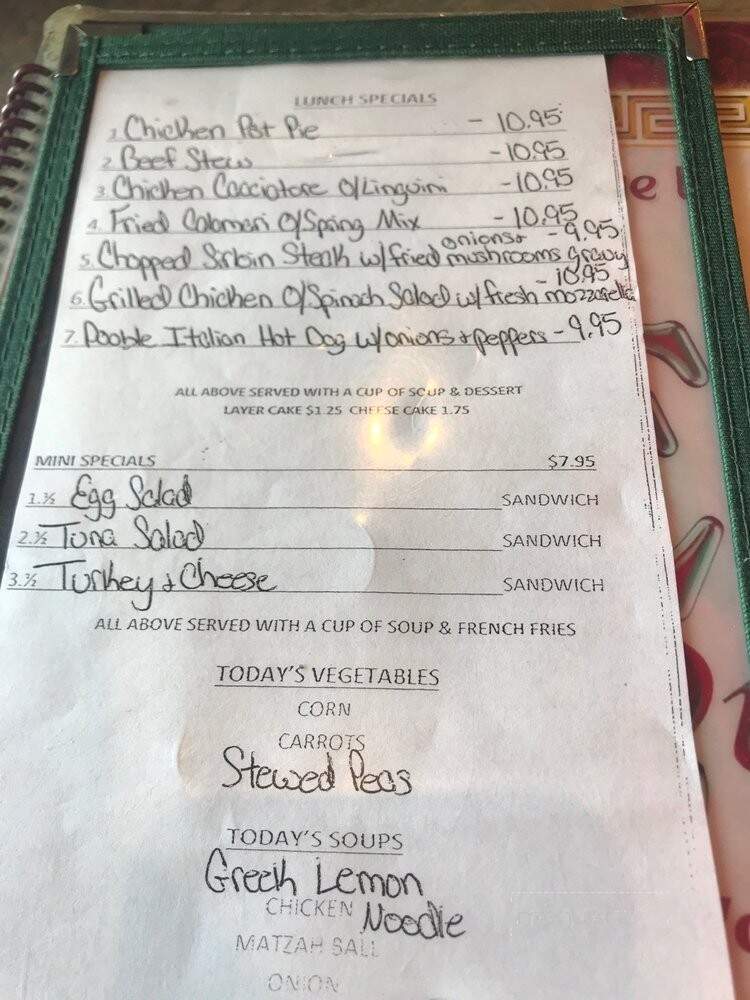 LUNCH SPECIALS
1. Chicken Pot Pie - 10.95
2. Beef Stew - 10.95
3. Chicken Cacciatore O/Linguini - 10.95
4. Fried Calamari O/Spring Mix - 10.95
5. Chopped Sirloin Steak w/fried onions + mushrooms gravy - 9.95
6. Grilled Chicken O/Spinach Salad w/fresh mozzarella - 10.95
7. Double Italian Hot Dog w/onions + peppers - 9.95
ALL ABOVE SERVED WITH A CUP OF SOUP & DESSERT
LAYER CAKE $1.25 CHEESE CAKE 1.75
MINI SPECIALS $7.95
1.½ Egg Salad SANDWICH
2.½ Tuna Salad SANDWICH
3.½ Turkey + Cheese SANDWICH
ALL ABOVE SERVED WITH A CUP OF SOUP & FRENCH FRIES
TODAY'S VEGETABLES
CORN
CARROTS
Stewed Peas
TODAY'S SOUPS
Greek Lemon
CHICKEN Noodle
MATZAH BALL
ONION